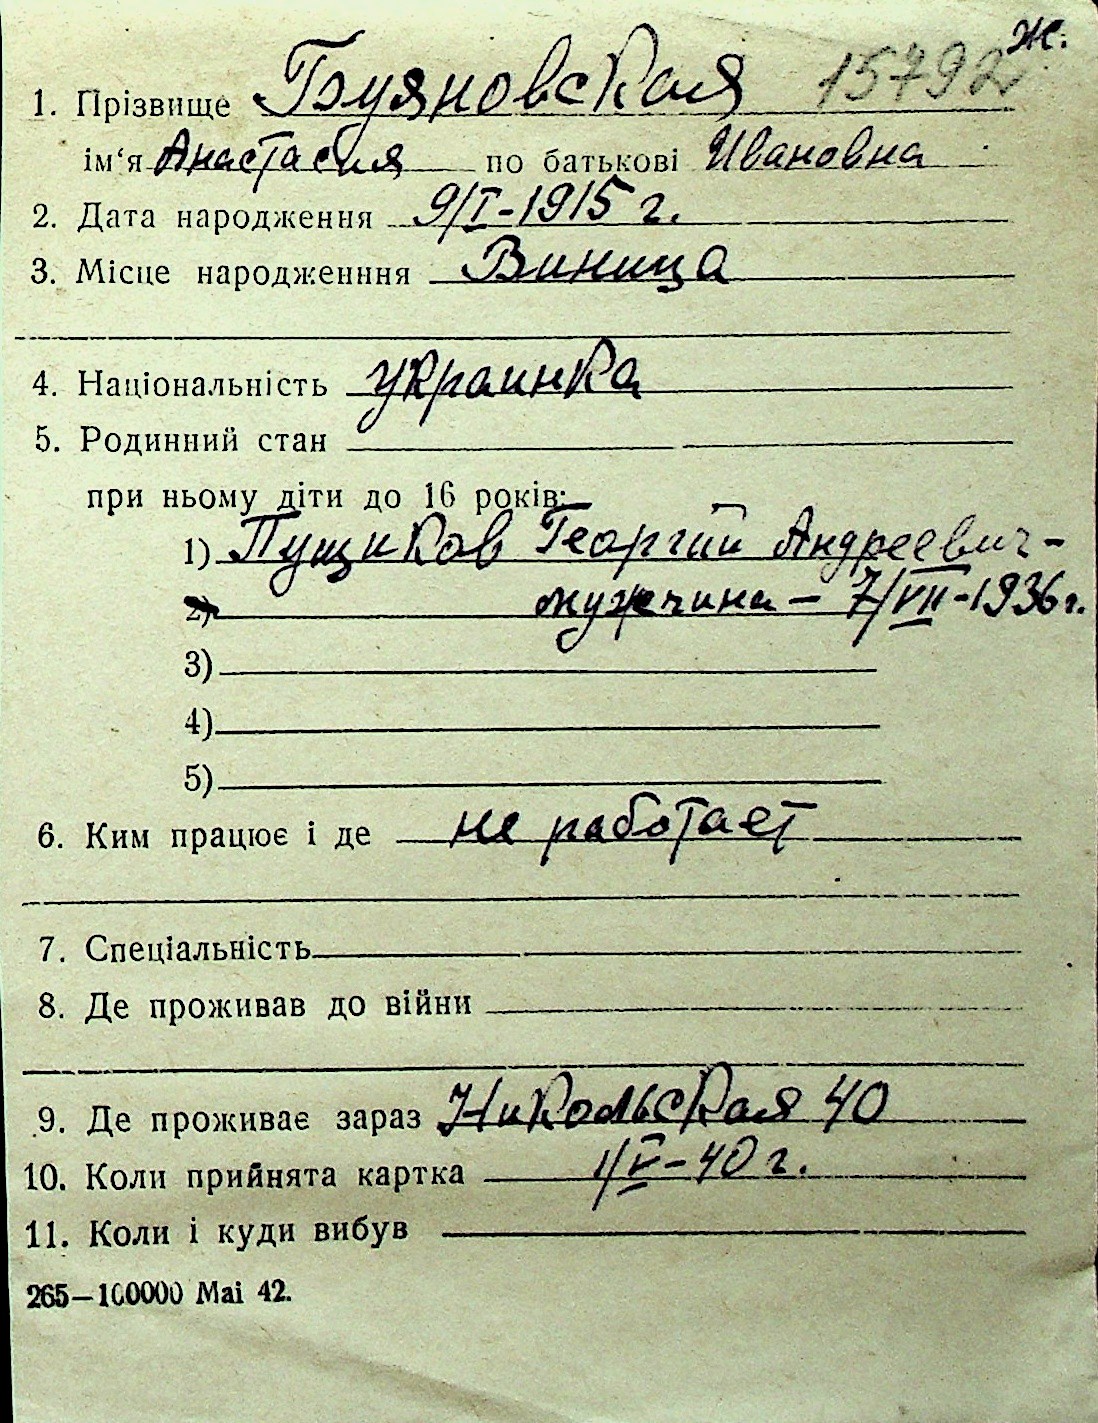 ж.
1. Прізвище Буяновская 15792
ім‘я Анастасия по батькові Ивановна
2. Дата народження 9/I-1915 г.
3. Місце народженння Виница
4. Національність украинка
5. Родинний стан
при ньому діти до 16 років:
1) Пущиков Георгий Андреевич -
2) мужчина - 7/VII-1936 г.
3)
4)
5)
6. Ким працює і де не работает
7. Спеціальність
8. Де проживав до війни
9. Де проживає зараз Никольская 40
10. Коли прийнята картка 1/V-40 г.
11. Коли і куди вибув
265—100000 Mai 42.